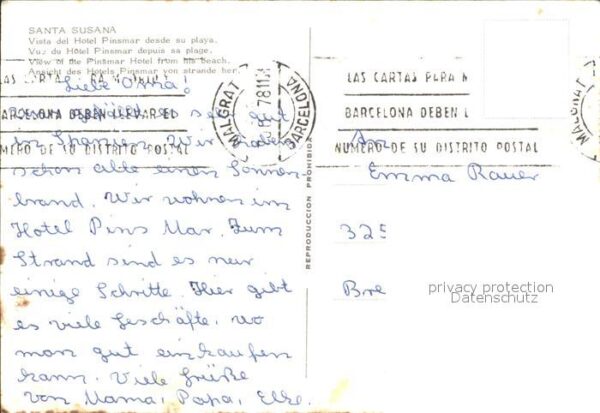 SANTA SUSANA
Vista del Hotel Pinsmar desde su playa.
Vue du Hôtel Pinsmar depuis sa plage.
View of the Pinsmar Hotel from his beach.
Ansicht des Hotels Pinsmar von strande her.
LAS CARTAS PARA
BARCELONA DEBEN LLEVAR EL
NUMERO DE SU DISTRITO POSTAL
MALGRAT
BARCELONA
LAS CARTAS PARA
BARCELONA DEBEN L
NUMERO DE SU DISTRITO POSTAL
MALGRAT
Liebe Oma!
es sehr gut
in Spanien. Wir haben
schon alle einen Sonnen-
brand. Wir wohnen im
Hotel Pins Mar. Zum
Strand sind es nur
einige Schritte. Hier gibt
es viele Geschäfte, wo
man gut einkaufen
kann. Viele Grüße
von Mama, Papa, Elke.
REPRODUCCION PROHIBIDA
An
Emma Rauer
325
Bre
privacy protection
Datenschutz